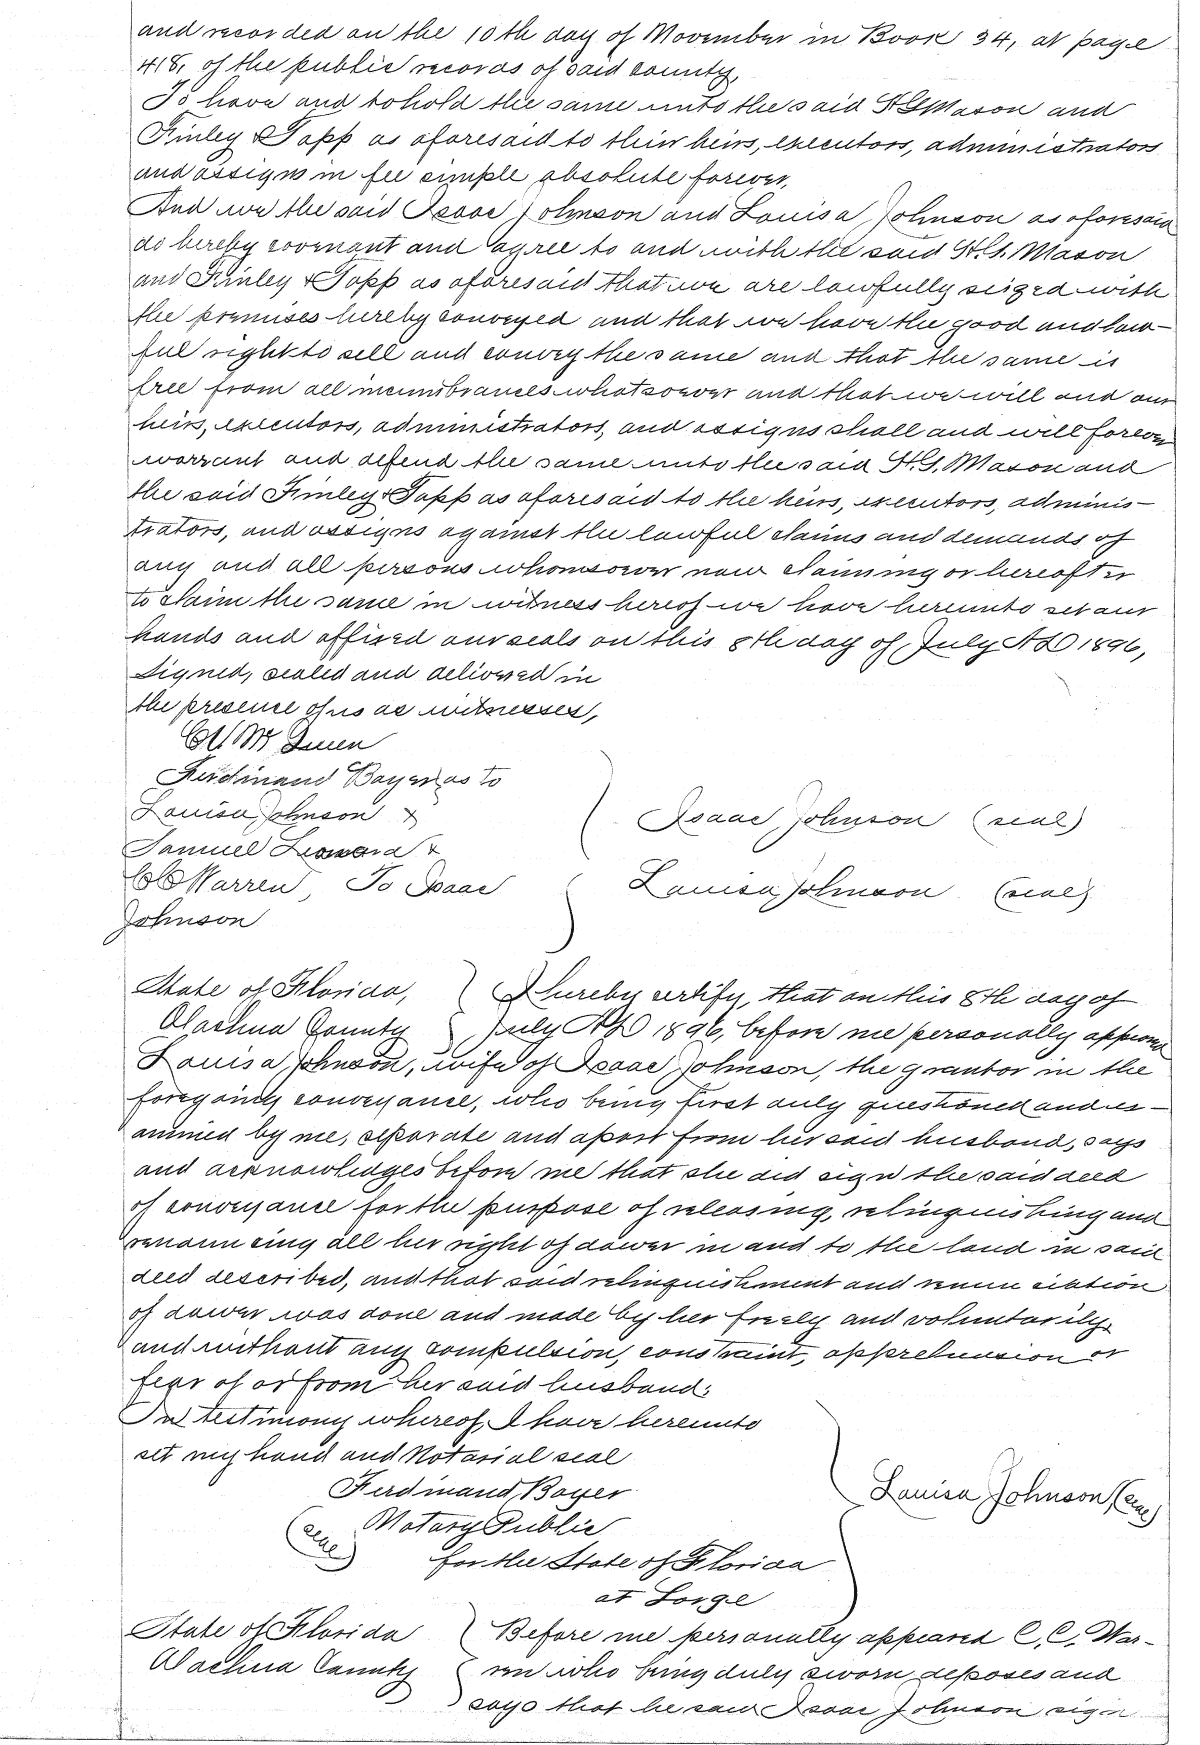 and recorded on the 10th day of November in Book 34, at page
418, of the public records of said county,
To have and to hold the same unto the said H.G. Mason and
Finley & Topp as aforesaid to their heirs, executors, administrators
and assigns in fee simple absolute forever,
And we the said Isaac Johnson and Louisa Johnson as aforesaid
do hereby covenant and agree to and with the said H.G. Mason
and Finley & Topp as aforesaid that we are lawfully seized with
the premises hereby conveyed and that we have the good and law-
ful right to sell and convey the same and that the same is
free from all incumbrances whatsoever and that we will and our
heirs, executors, administrators, and assigns shall and will forever
warrant and defend the same unto the said H.G. Mason and
the said Finley & Topp as aforesaid to the heirs, executors, adminis-
trators, and assigns against the lawful claims and demands of
any and all persons whomsoever now claiming or hereafter
to claim the same in witness hereof we have hereunto set our
hands and affixed our seals on this 8th day of July AD 1896,
Signed, sealed and delivered in
the presence of us as witnesses,
Ferdinand Bayer as to
Louisa Johnson &
Isaac Johnson (seal)
Samuel &
C C Warren, To Isaac
Louisa Johnson (seal)
Johnson
State of Florida, } I hereby certify, that on this 8th day of
Alachua County } July AD 1896, before me personally appeared
Louisa Johnson, wife of Isaac Johnson, the grantor in the
foregoing conveyance, who being first duly questioned and ex-
amined by me, separate and apart from her said husband, says
and acknowledges before me that she did sign the said deed
of conveyance for the purpose of releasing, relinquishing and
renouncing all her right of dower in and to the land in said
deed described, and that said relinquishment and renunciation
of dower was done and made by her freely and voluntarily,
and without any compulsion, constraint, apprehension or
fear of or from her said husband:
In testimony whereof, I have hereunto
set my hand and Notarial seal
Ferdinand Bayer
Louisa Johnson (seal)
(seal) Notary Public
for the State of Florida
at Large
State of Florida } Before me personally appeared C. C. War-
Alachua County } ren who being duly sworn, deposes and
says that he saw Isaac Johnson sign